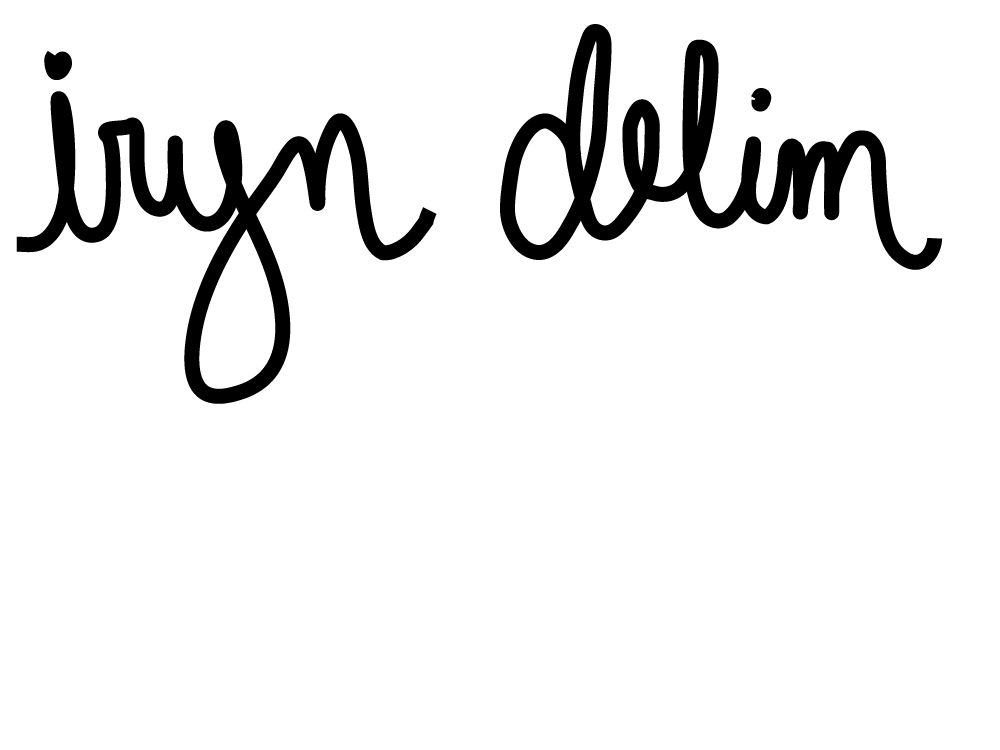 iryn delim